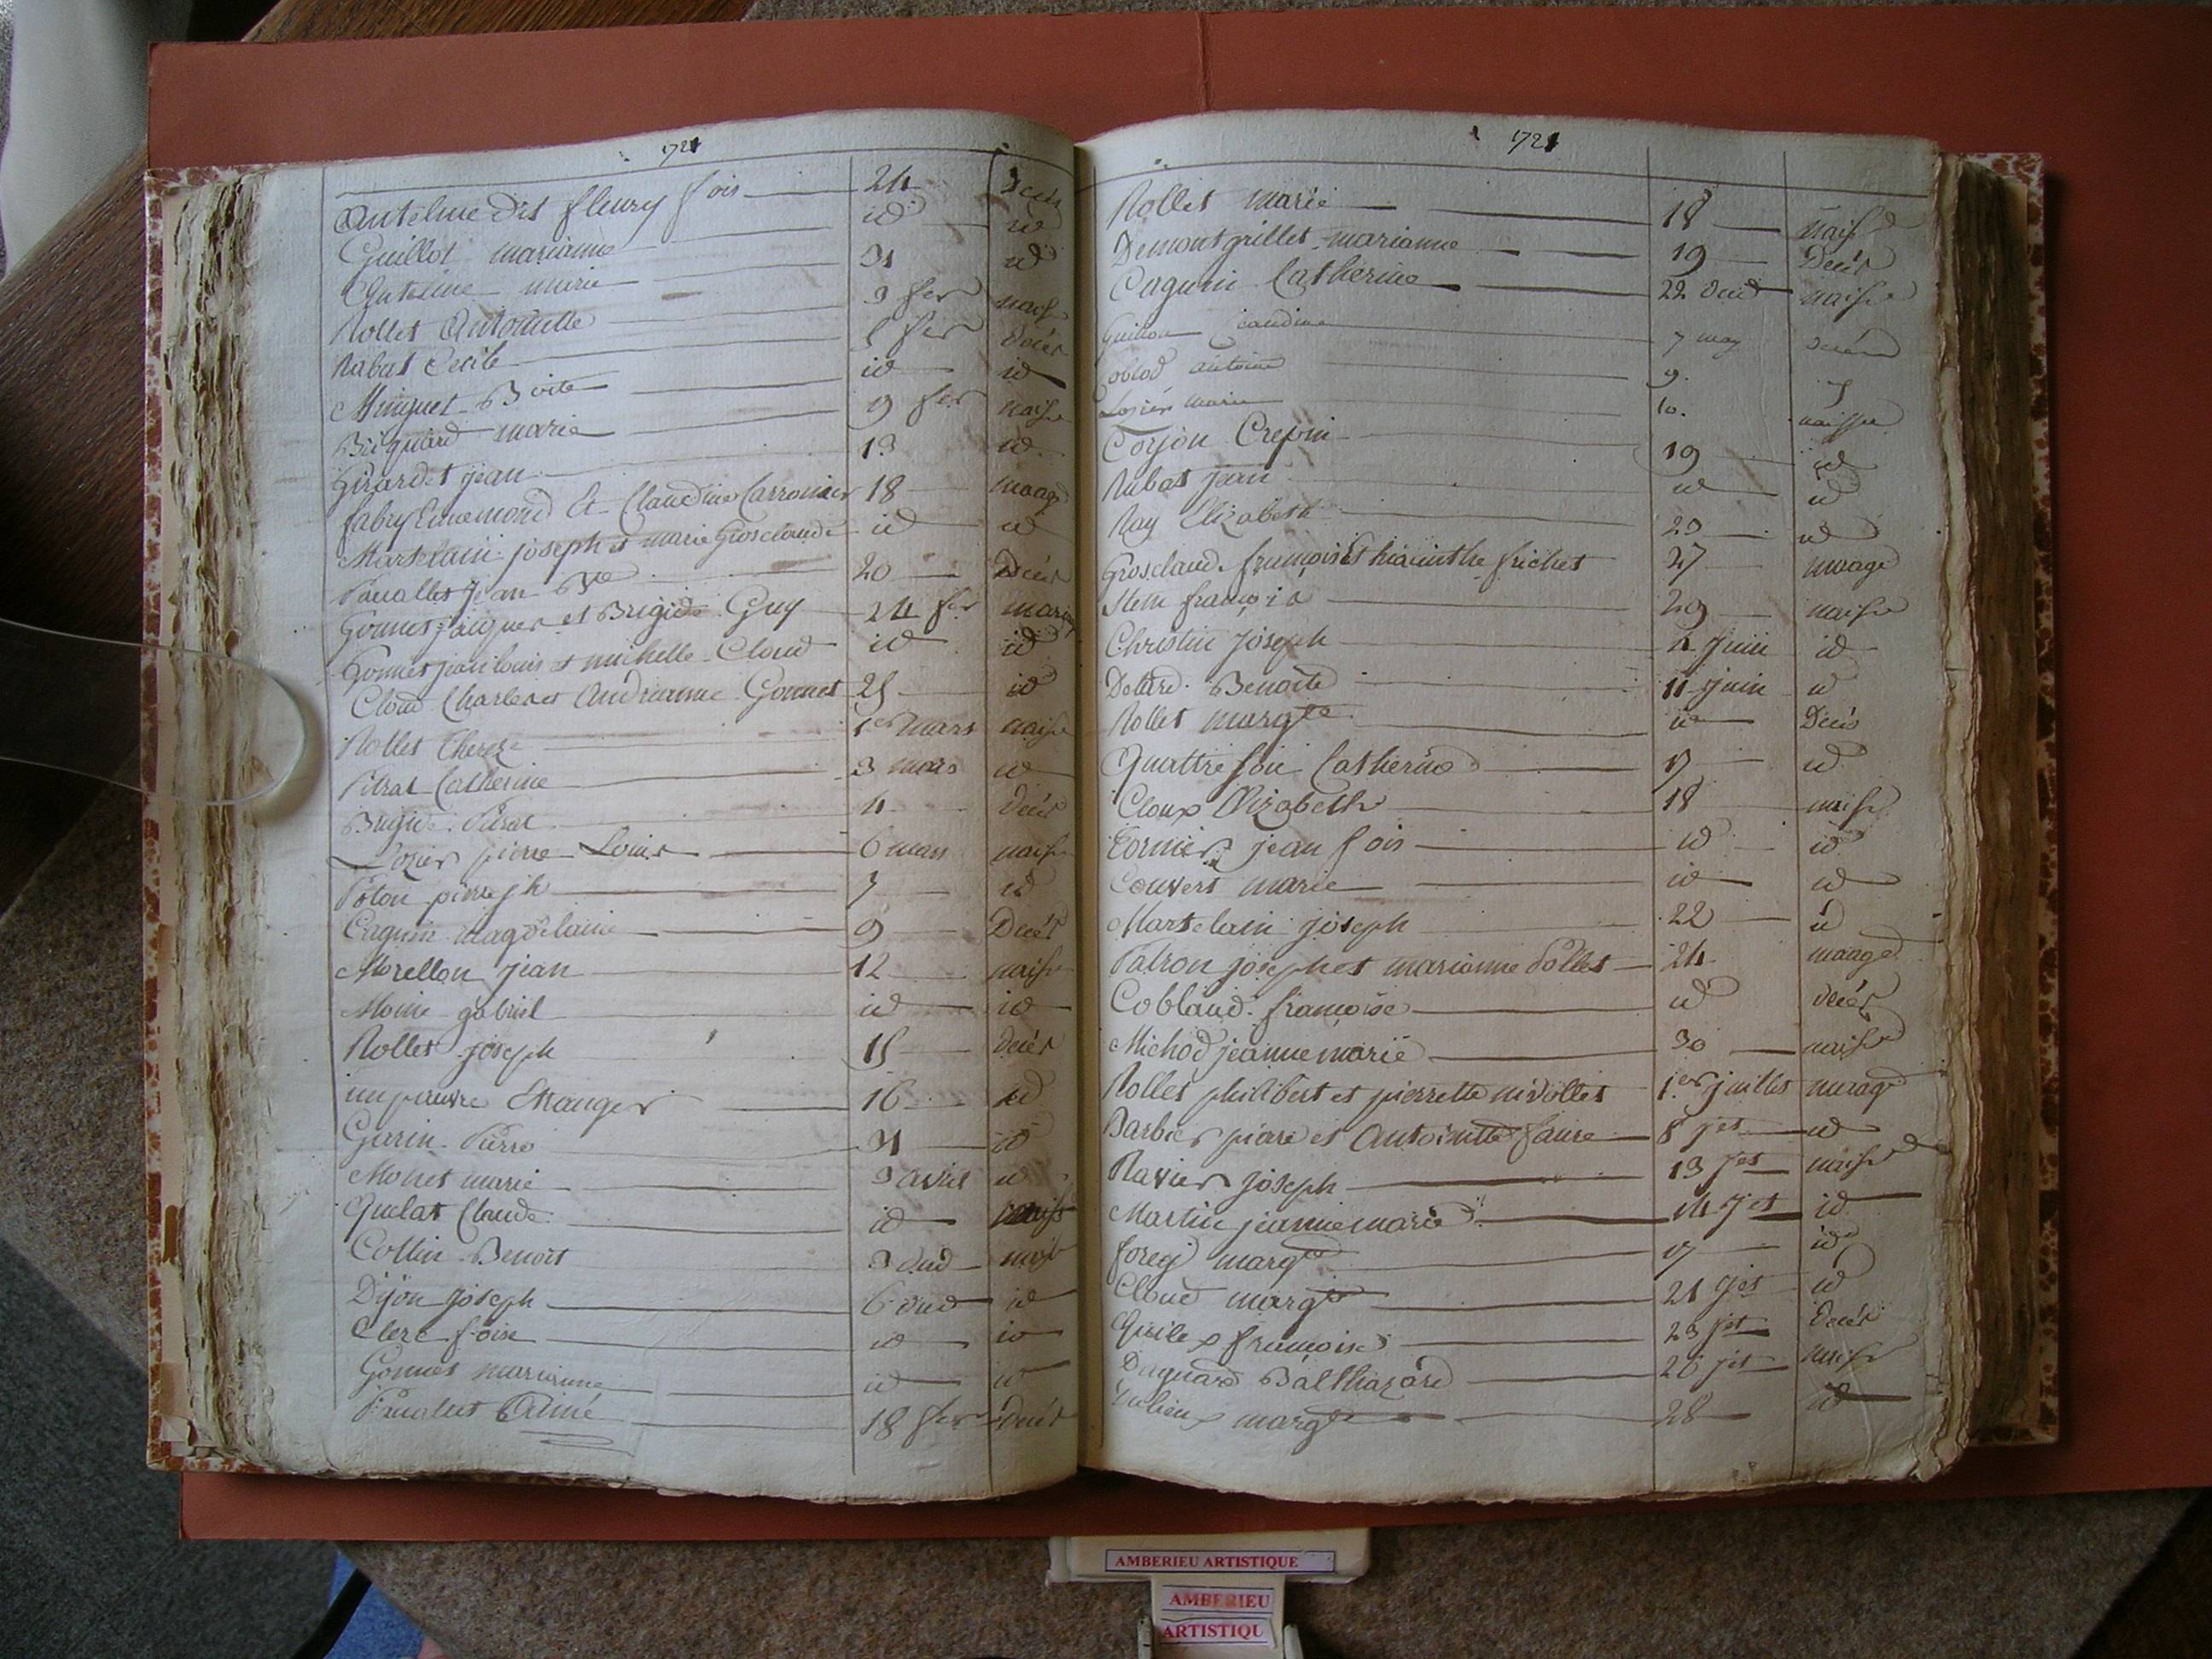 1721
Antelme dit fleury fois 24 Decès
Guillot marianne id id
Antelme marie 31 id
Rollet Antoinette 3 fer naisce
Rabat Cecile 5 fer décès
Minguet Boite id id
Bicquard marie 9 fer naisce
Girardet jean 13 id
fabry Ennemond Et Claudine Carronier 18 maage
Marselain joseph et marie Grosclaude id id
jean Bte 20 Décès
Gonnet jacques et Brigide Guy 24 fer mariage
Gonnet jean louis et michelle Cloud id id
Cloud Charles et Andrianne Gonnet 25 id
Rollet Thereze 1er mars naisce
Pitrat Catherine 3 mars id
Brigide Pitrat 4 decès
Lozier pierre Louis 6 mars naisce
Poton pierre jh 7 id
Caguin magdelaine 9 Decès
Morellon jean 12 naisce
Moine gabriel id id
Rollet joseph 15 decès
un pauvre Etranger 16 id
Garin Pierre 31 id
Monet marie 3 avril id
Quelat Claude id
Collin Benoit 3 dud naisce
Dijon joseph 6 dud id
Clerc foise id id
Gonnet marianne id id
Aimé 18 fer Decès
1721
Rollet marie 18 naisce
Demontgrillet marianne 19 Decès
Caguin Catherine 22 dud naisce
Guillon claudine 7 may
Coblod antoine 9.
Lozier marie 10. naissce
Corjon Crepin 19 id
Rubat jean id id
Ray Elizabeth 23 id
Grosclaude françois et hiacinthe frichet 27 maage
Stem françois 29 naisce
Christin joseph 4 juin id
Delare Benoite 11 juin id
Rollet margte id Decès
Quattrefoin Catherine 17 id
Cloux Elizabeth 18 naisce
Tornier jean fois id id
Convert marie id id
Marselain joseph 22 id
Patron joseph et marianne Pollet 24 maage
Cobland françoise id decès
Michod jeanne marie 30 naisce
Rollet philibert et pierrette nidollet 1er juillet marage
Barbier piare et Antoinette faure 8 jet id
Ravier joseph 13 jet naisce
Martin jeanne marie 14 jet id
forey margte 17 id
Cloud margte 21 jet id
Quilex françoise 23 jet Decès
Daguard Balthazard 26 jet naisce
margte 28 id
AMBERIEU ARTISTIQUE
AMBERIEU
ARTISTIQU